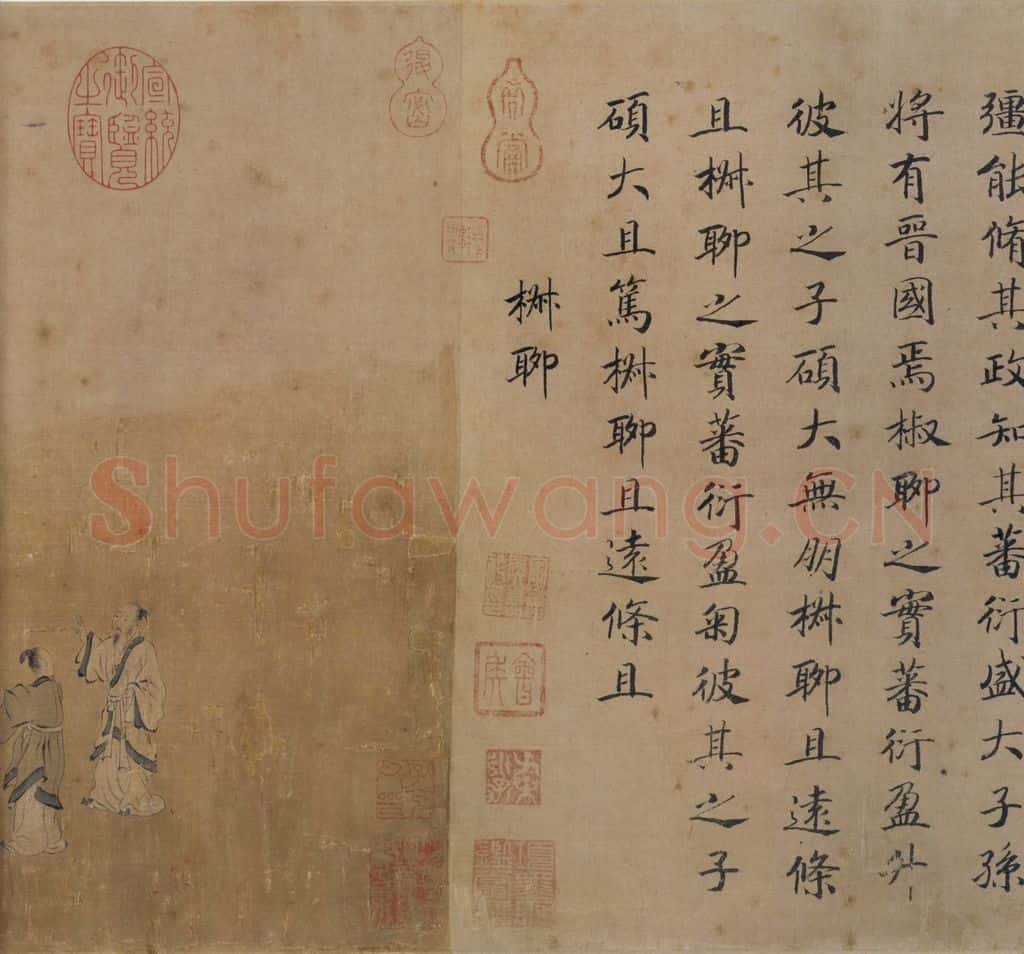 彊能脩其政知其蕃衍盛大子孫
將有晉國焉椒聊之實蕃衍盈升
彼其之子碩大無朋椒聊且遠條
且椒聊之實蕃衍盈匊彼其之子
碩大且篤椒聊且遠條且
椒聊
宣統御覽之寶
Shufawang.CN